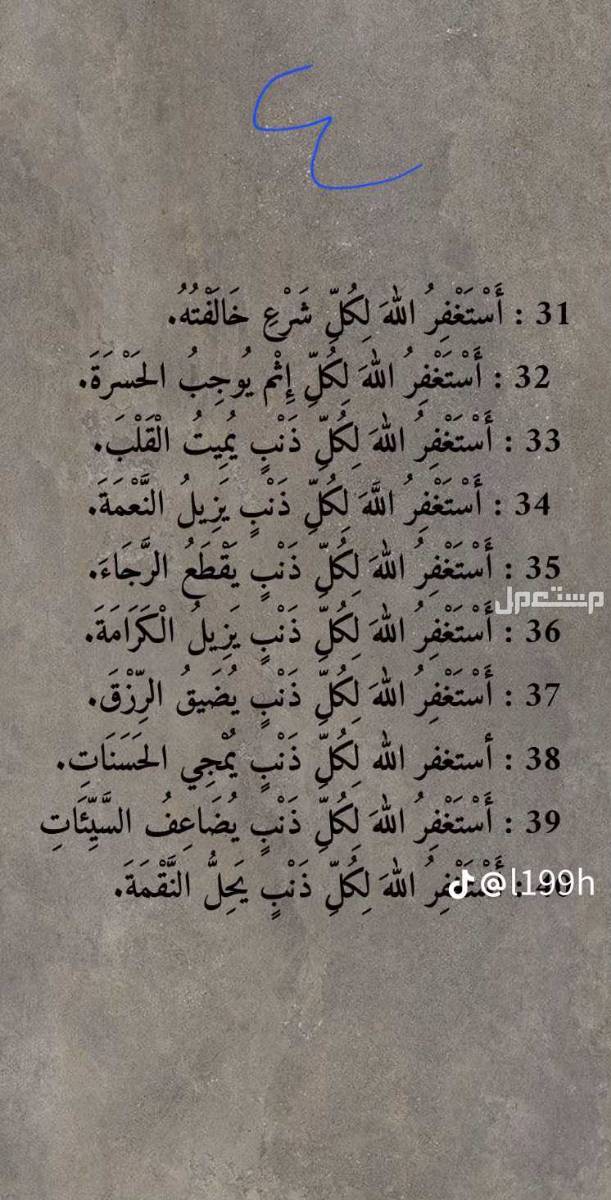 ٤
31 : أَسْتَغْفِرُ اللهَ لِكُلِّ شَرْعٍ خَالَفْتُهُ.
32 : أَسْتَغْفِرُ اللهَ لِكُلِّ إِثْم يُوجِبُ الحَسْرَةَ.
33 : أَسْتَغْفِرُ اللهَ لِكُلِّ ذَنْبٍ يُمِيتُ الْقَلْبَ.
34 : أَسْتَغْفِرُ اللَّهَ لِكُلِّ ذَنْبٍ يَزِيلُ النَّعْمَةَ.
35 : أَسْتَغْفِرُ اللهَ لِكُلِّ ذَنْبٍ يَقْطَعُ الرَّجَاءَ.
مستعمل
36 : أَسْتَغْفِرُ اللهَ لِكُلِّ ذَنْبٍ يَزِيلُ الْكَرَامَةَ.
37 : أَسْتَغْفِرُ اللهَ لِكُلِّ ذَنْبٍ يُضَيقُ الرِّزْقَ.
38 : أستغفر الله لِكُلِّ ذَنْبٍ يُمْحِي الحَسَنَاتِ.
39 : أَسْتَغْفِرُ اللهَ لِكُلِّ ذَنْبٍ يُضَاعِفُ السَّيِّئَاتِ
40 : أَسْتَغْفِرُ اللهَ لِكُلِّ ذَنْبٍ يَحِلُّ النَّقْمَةَ.
@l199h